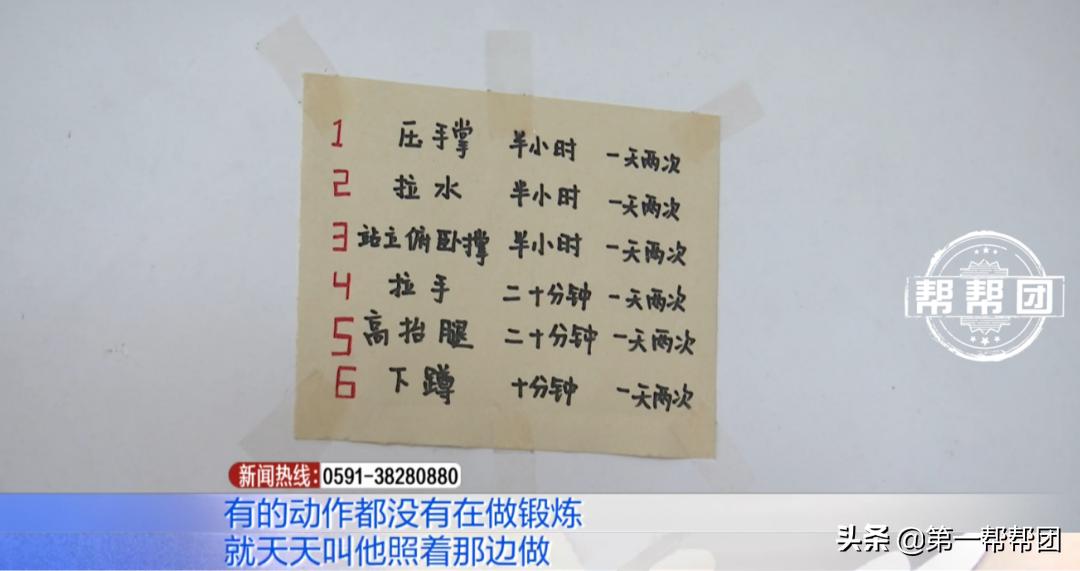 1 压手掌 半小时 一天两次
2 拉水 半小时 一天两次
3 站立俯卧撑 半小时 一天两次
4 拉手 二十分钟 一天两次
5 高抬腿 二十分钟 一天两次
6 下蹲 十分钟 一天两次
帮帮团
新闻热线:0591-38280880
有的动作都没有在做锻炼
就天天叫他照着那边做
头条 @第一帮帮团